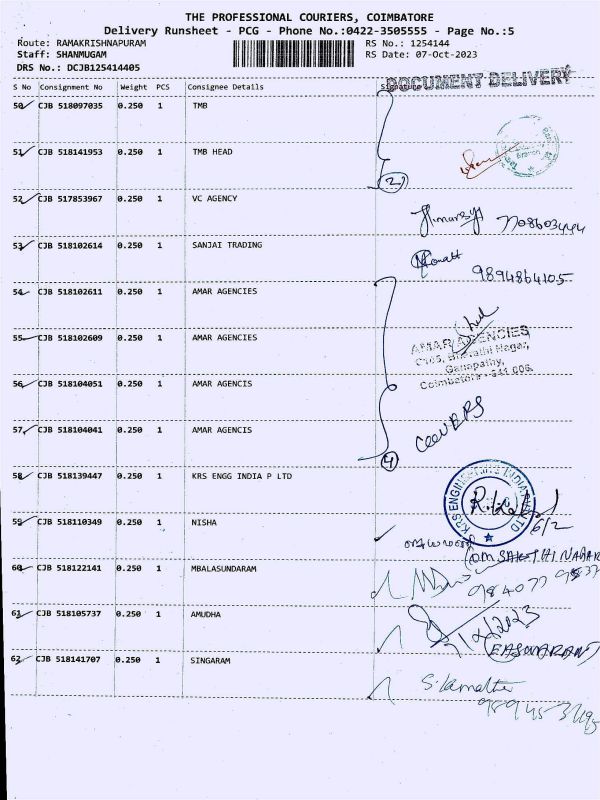 THE PROFESSIONAL COURIERS, COIMBATORE
Delivery Runsheet - PCG - Phone No.:0422-3505555 - Page No.:5
Route: RAMAKRISHNAPURAM RS No.: 1254144
Staff: SHANMUGAM RS Date: 07-Oct-2023
DRS No.: DCJB125414405
DOCUMENT DELIVERY
S No Consignment No Weight PCS Consignee Details Signature
50 CJB 518097035 0.250 1 TMB
51 CJB 518141953 0.250 1 TMB HEAD
2
52 CJB 517853967 0.250 1 VC AGENCY
7708603444
53 CJB 518102614 0.250 1 SANJAI TRADING
9894864105
54 CJB 518102611 0.250 1 AMAR AGENCIES
55 CJB 518102609 0.250 1 AMAR AGENCIES
AMAR AGENCIES
C105, Bharathi Nagar,
Ganapathy,
Coimbatore - 641 006.
56 CJB 518104051 0.250 1 AMAR AGENCIS
57 CJB 518104041 0.250 1 AMAR AGENCIS
4
58 CJB 518139447 0.250 1 KRS ENGG INDIA P LTD
KRS ENGINEERING INDIA PVT LTD
59 CJB 518110349 0.250 1 NISHA
SAKTHI NAGAR
60 CJB 518122141 0.250 1 MBALASUNDARAM
984077
61 CJB 518105737 0.250 1 AMUDHA
(EASWARAN)
62 CJB 518141707 0.250 1 SINGARAM